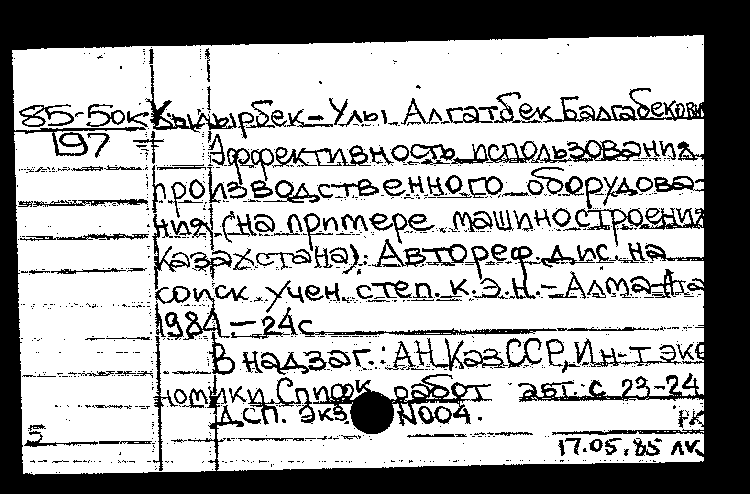 85-50к Кыдырбек-Улы Алгатбек Балгабекови
197
Эффективность использования
производственного оборудова-
ния (на примере машиностроения
Казахстана): Автореф. дис. на
соиск. учен. степ. к.э.н. - Алма-Ата
1984. - 24с
В надзаг.: АН КазССР, Ин-т эко
номики. Список работ авт.: с 23-24
ДСП. Экз. N004.
РК
5
17.05.85 ЛК